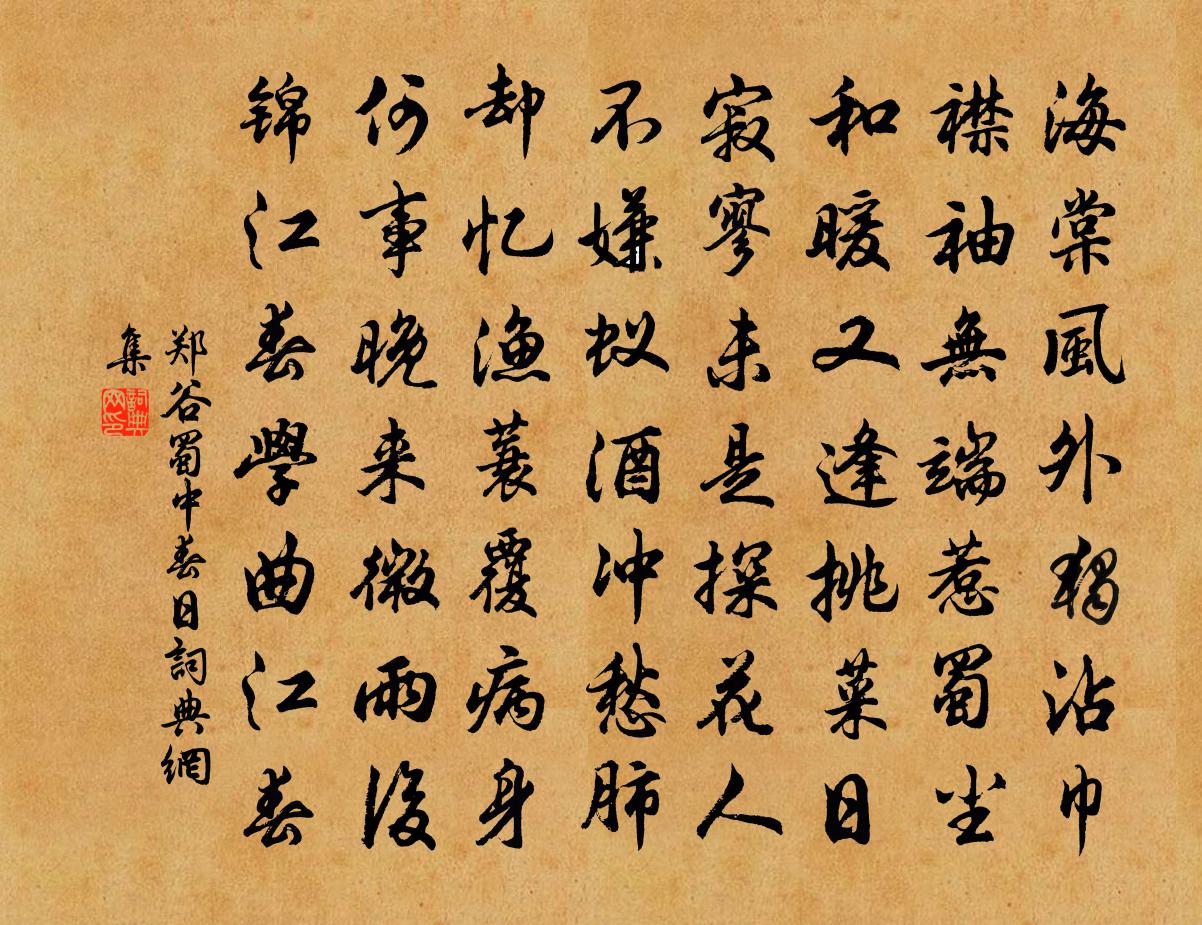 海棠風外獨沾巾
襟袖無端惹蜀尘
和暖又逢挑菜日
寂寥未是探花人
不嫌蚁酒冲愁肺
却忆渔蓑覆病身
何事晚来微雨後
锦江春學曲江春
郑谷蜀中春日詞典網
集
詞典
网印